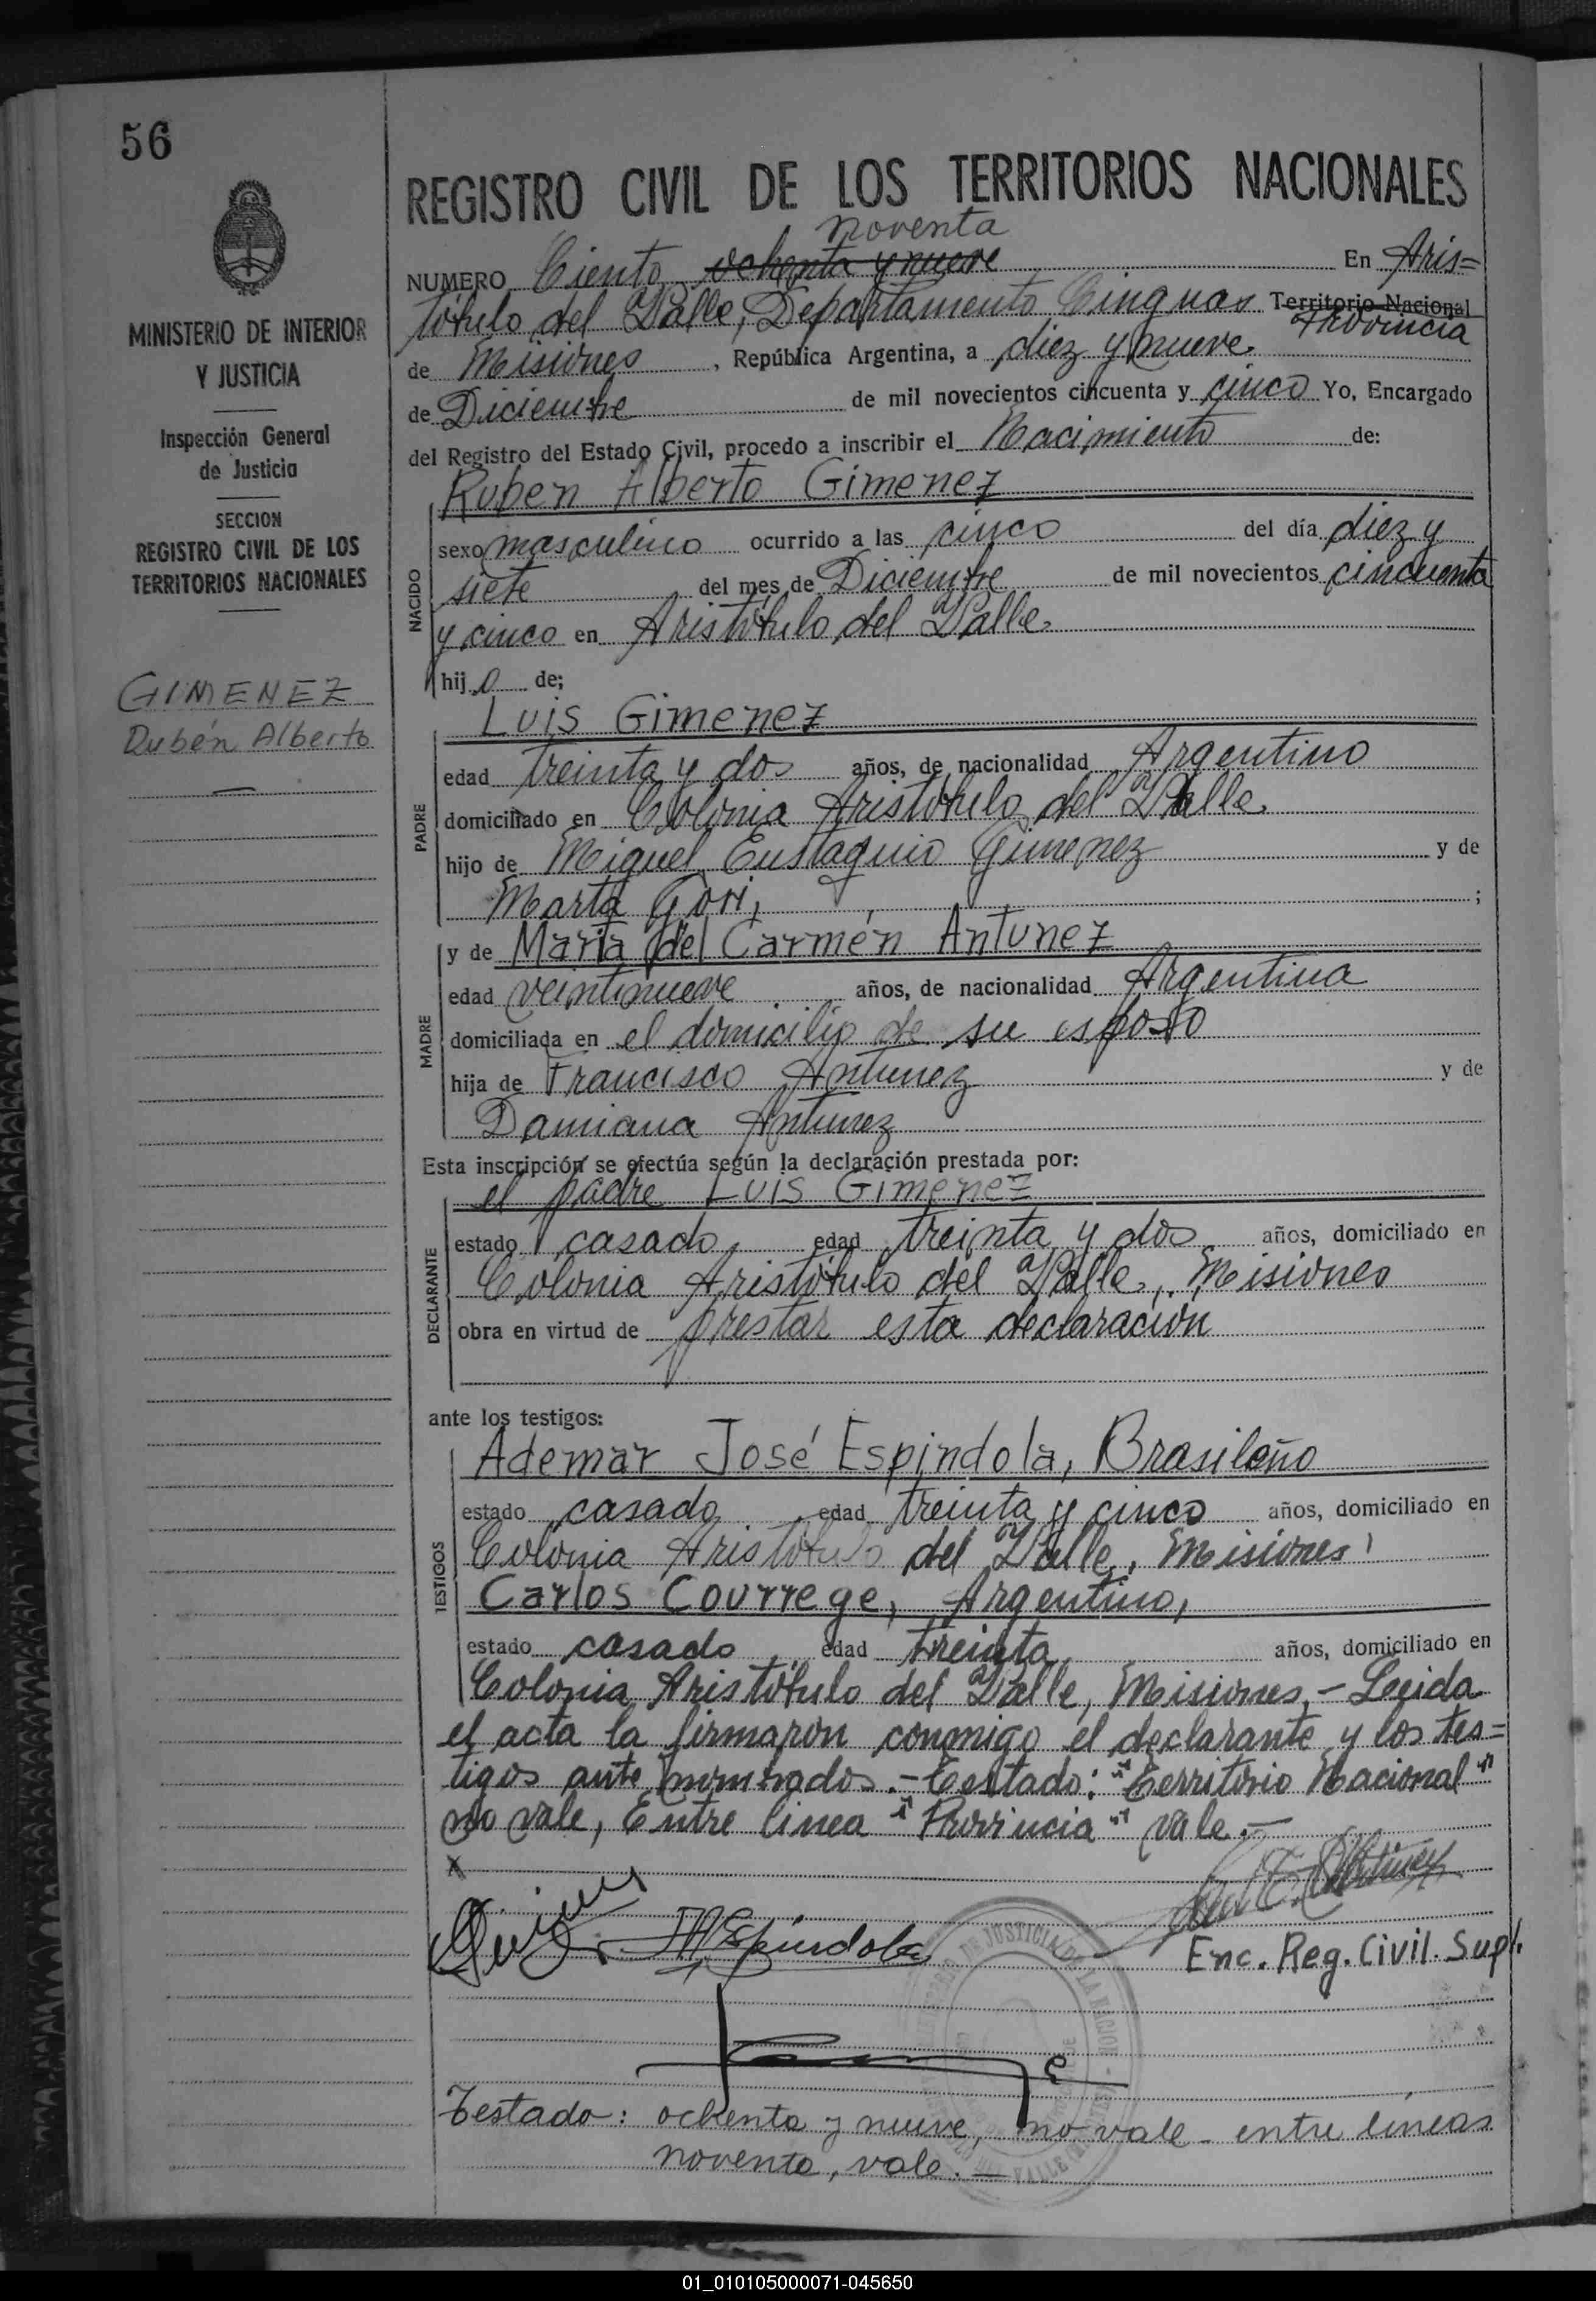 56
MINISTERIO DE INTERIOR
Y JUSTICIA
Inspección General
de Justicia
SECCION
REGISTRO CIVIL DE LOS
TERRITORIOS NACIONALES
GIMENEZ
Rubén Alberto
REGISTRO CIVIL DE LOS TERRITORIOS NACIONALES
noventa
NUMERO Ciento ochenta y nueve En Aris=
tóbulo del Valle, Departamento Cinguas Territorio Nacional
Provincia
de Misiones, República Argentina, a diez y nueve
de Diciembre de mil novecientos cincuenta y cinco Yo, Encargado
del Registro del Estado Civil, procedo a inscribir el Nacimiento de:
Ruben Alberto Gimenez
NACIDO
sexo masculino ocurrido a las cinco del día diez y
siete del mes de Diciembre de mil novecientos cincuenta
y cinco en Aristóbulo del Valle
hijo de;
Luis Gimenez
PADRE
edad treinta y dos años, de nacionalidad Argentino
domiciliado en Colonia Aristóbulo del Valle
hijo de Miguel Eustaquio Gimenez y de
Marta Gori, ;
y de Maria del Carmén Antunez
MADRE
edad veintinueve años, de nacionalidad Argentina
domiciliada en el domicilio de su esposo
hija de Francisco Antunez y de
Damiana Antunez
Esta inscripción se efectúa según la declaración prestada por:
el padre Luis Gimenez
DECLARANTE
estado casado edad treinta y dos años, domiciliado en
Colonia Aristóbulo del Valle, Misiones
obra en virtud de prestar esta declaración
ante los testigos:
Ademar José Espindola, Brasileño
TESTIGOS
estado casado edad treinta y cinco años, domiciliado en
Colonia Aristóbulo del Valle, Misiones
Carlos Courrege, Argentino,
estado casado edad treinta años, domiciliado en
Colonia Aristóbulo del Valle, Misiones.- Leida
el acta la firmaron conmigo el declarante y los tes=
tigos ante nombrados.- Testado: "Territorio Nacional"
no vale, Entre linea "Provincia" vale.-
x
Espindola
Enc. Reg. Civil. Supl.
JUSTICIA DE LA NACION
Testado: ochenta y nueve, no vale - entre líneas
noventa, vale.-
01_010105000071-045650